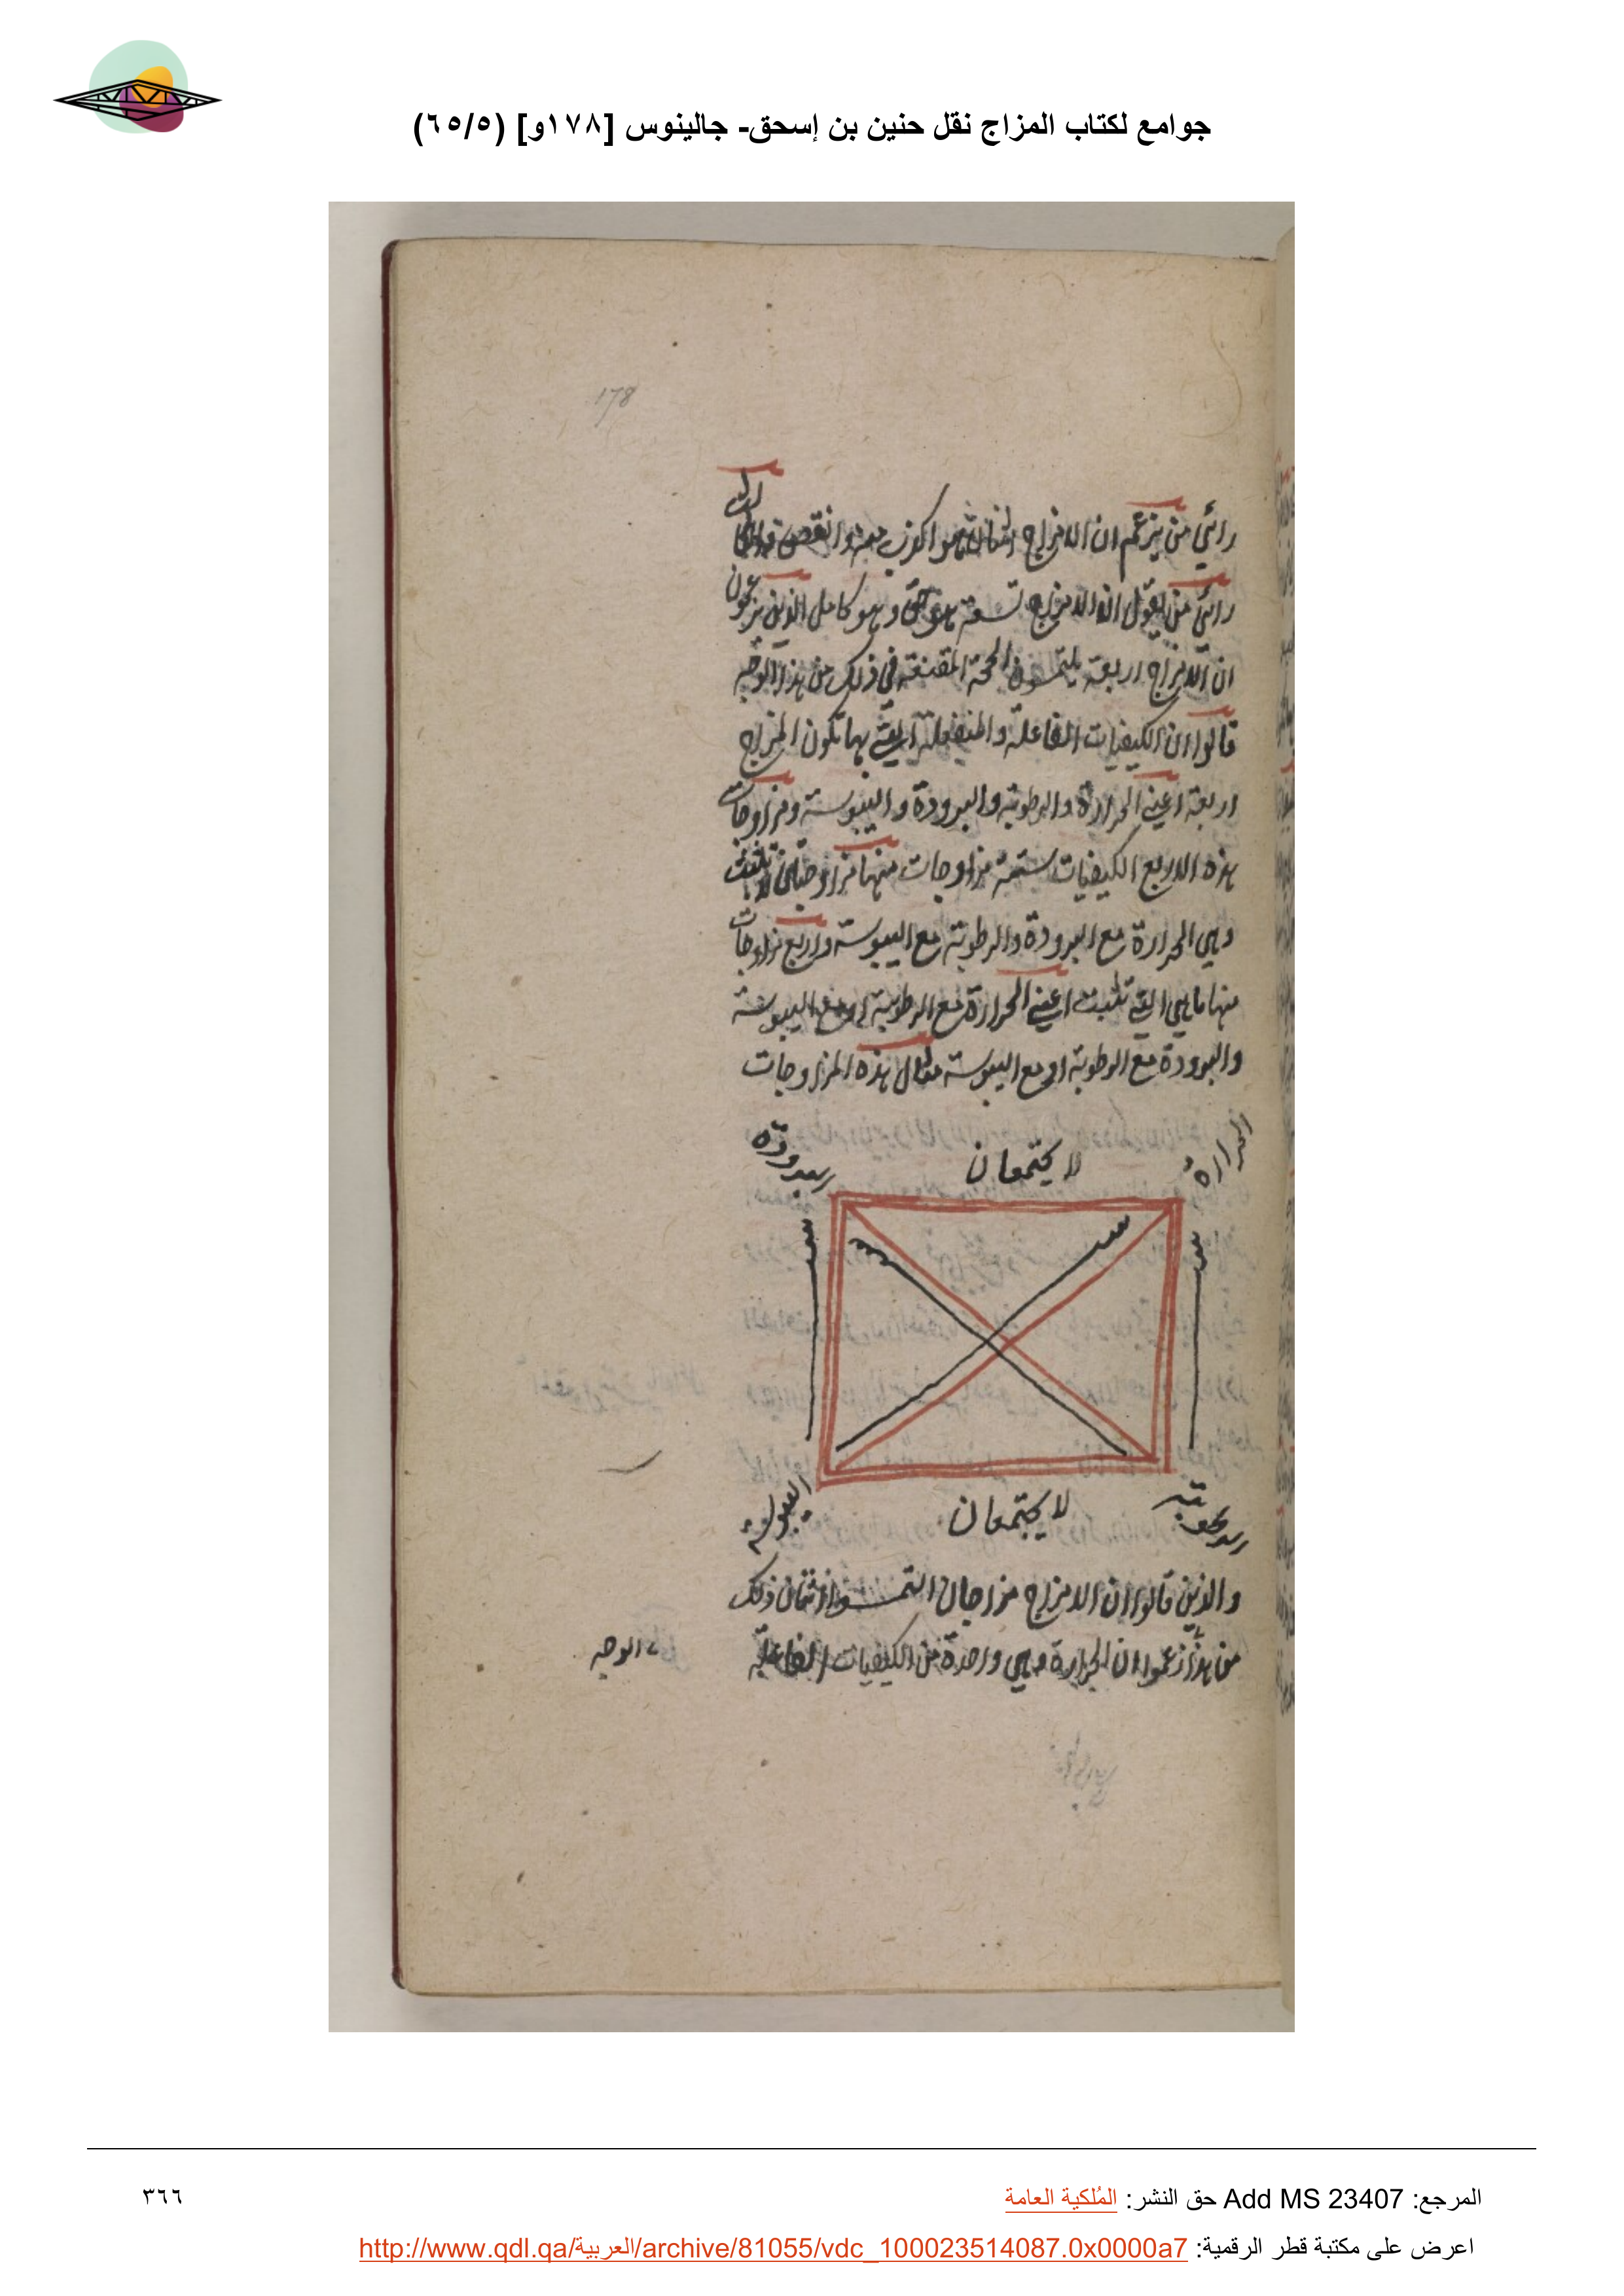 جوامع لكتاب المزاج نقل حنين بن إسحق- جالينوس [١٧٨و] (٦٥/٥)
178
رائي من يزعم ان الامزاج هو اكذب منه وانقص
رائي من يقول ان الامزاج تسعة هو حق وهو كامل الذين يزعمون
ان الامزاج اربعة يلتمسون الحجة المقنعة في ذلك من هذا الوجه
قالوا ان الكيفيات الفاعلة والمنفعلة التي بها تكون المزاج
اربعة اعني الحرارة والرطوبة والبرودة واليبوسة ومزاوجات
هذه الاربع الكيفيات ستة مزاوجات منها مزاوجتان لا تثبت
وهي الحرارة مع البرودة والرطوبة مع اليبوسة واربع مزاوجات
منها ما هي التي تثبت اعني الحرارة مع الرطوبة او مع اليبوسة
والبرودة مع الرطوبة او مع اليبوسة مثال هذه المزاوجات
الحرارة
لا يجتمعان
البرودة
الرطوبة
لا يجتمعان
اليبوسة
والذين قالوا ان الامزاج مزاجان التمسوا ذلك
من هذا زعموا ان الحرارة وهي واحدة من الكيفيات الفاعلة
الوجه
المرجع: Add MS 23407 حق النشر: المُلكية العامة
٣٦٦
اعرض على مكتبة قطر الرقمية: http://www.qdl.qa/العربية/archive/81055/vdc_100023514087.0x0000a7